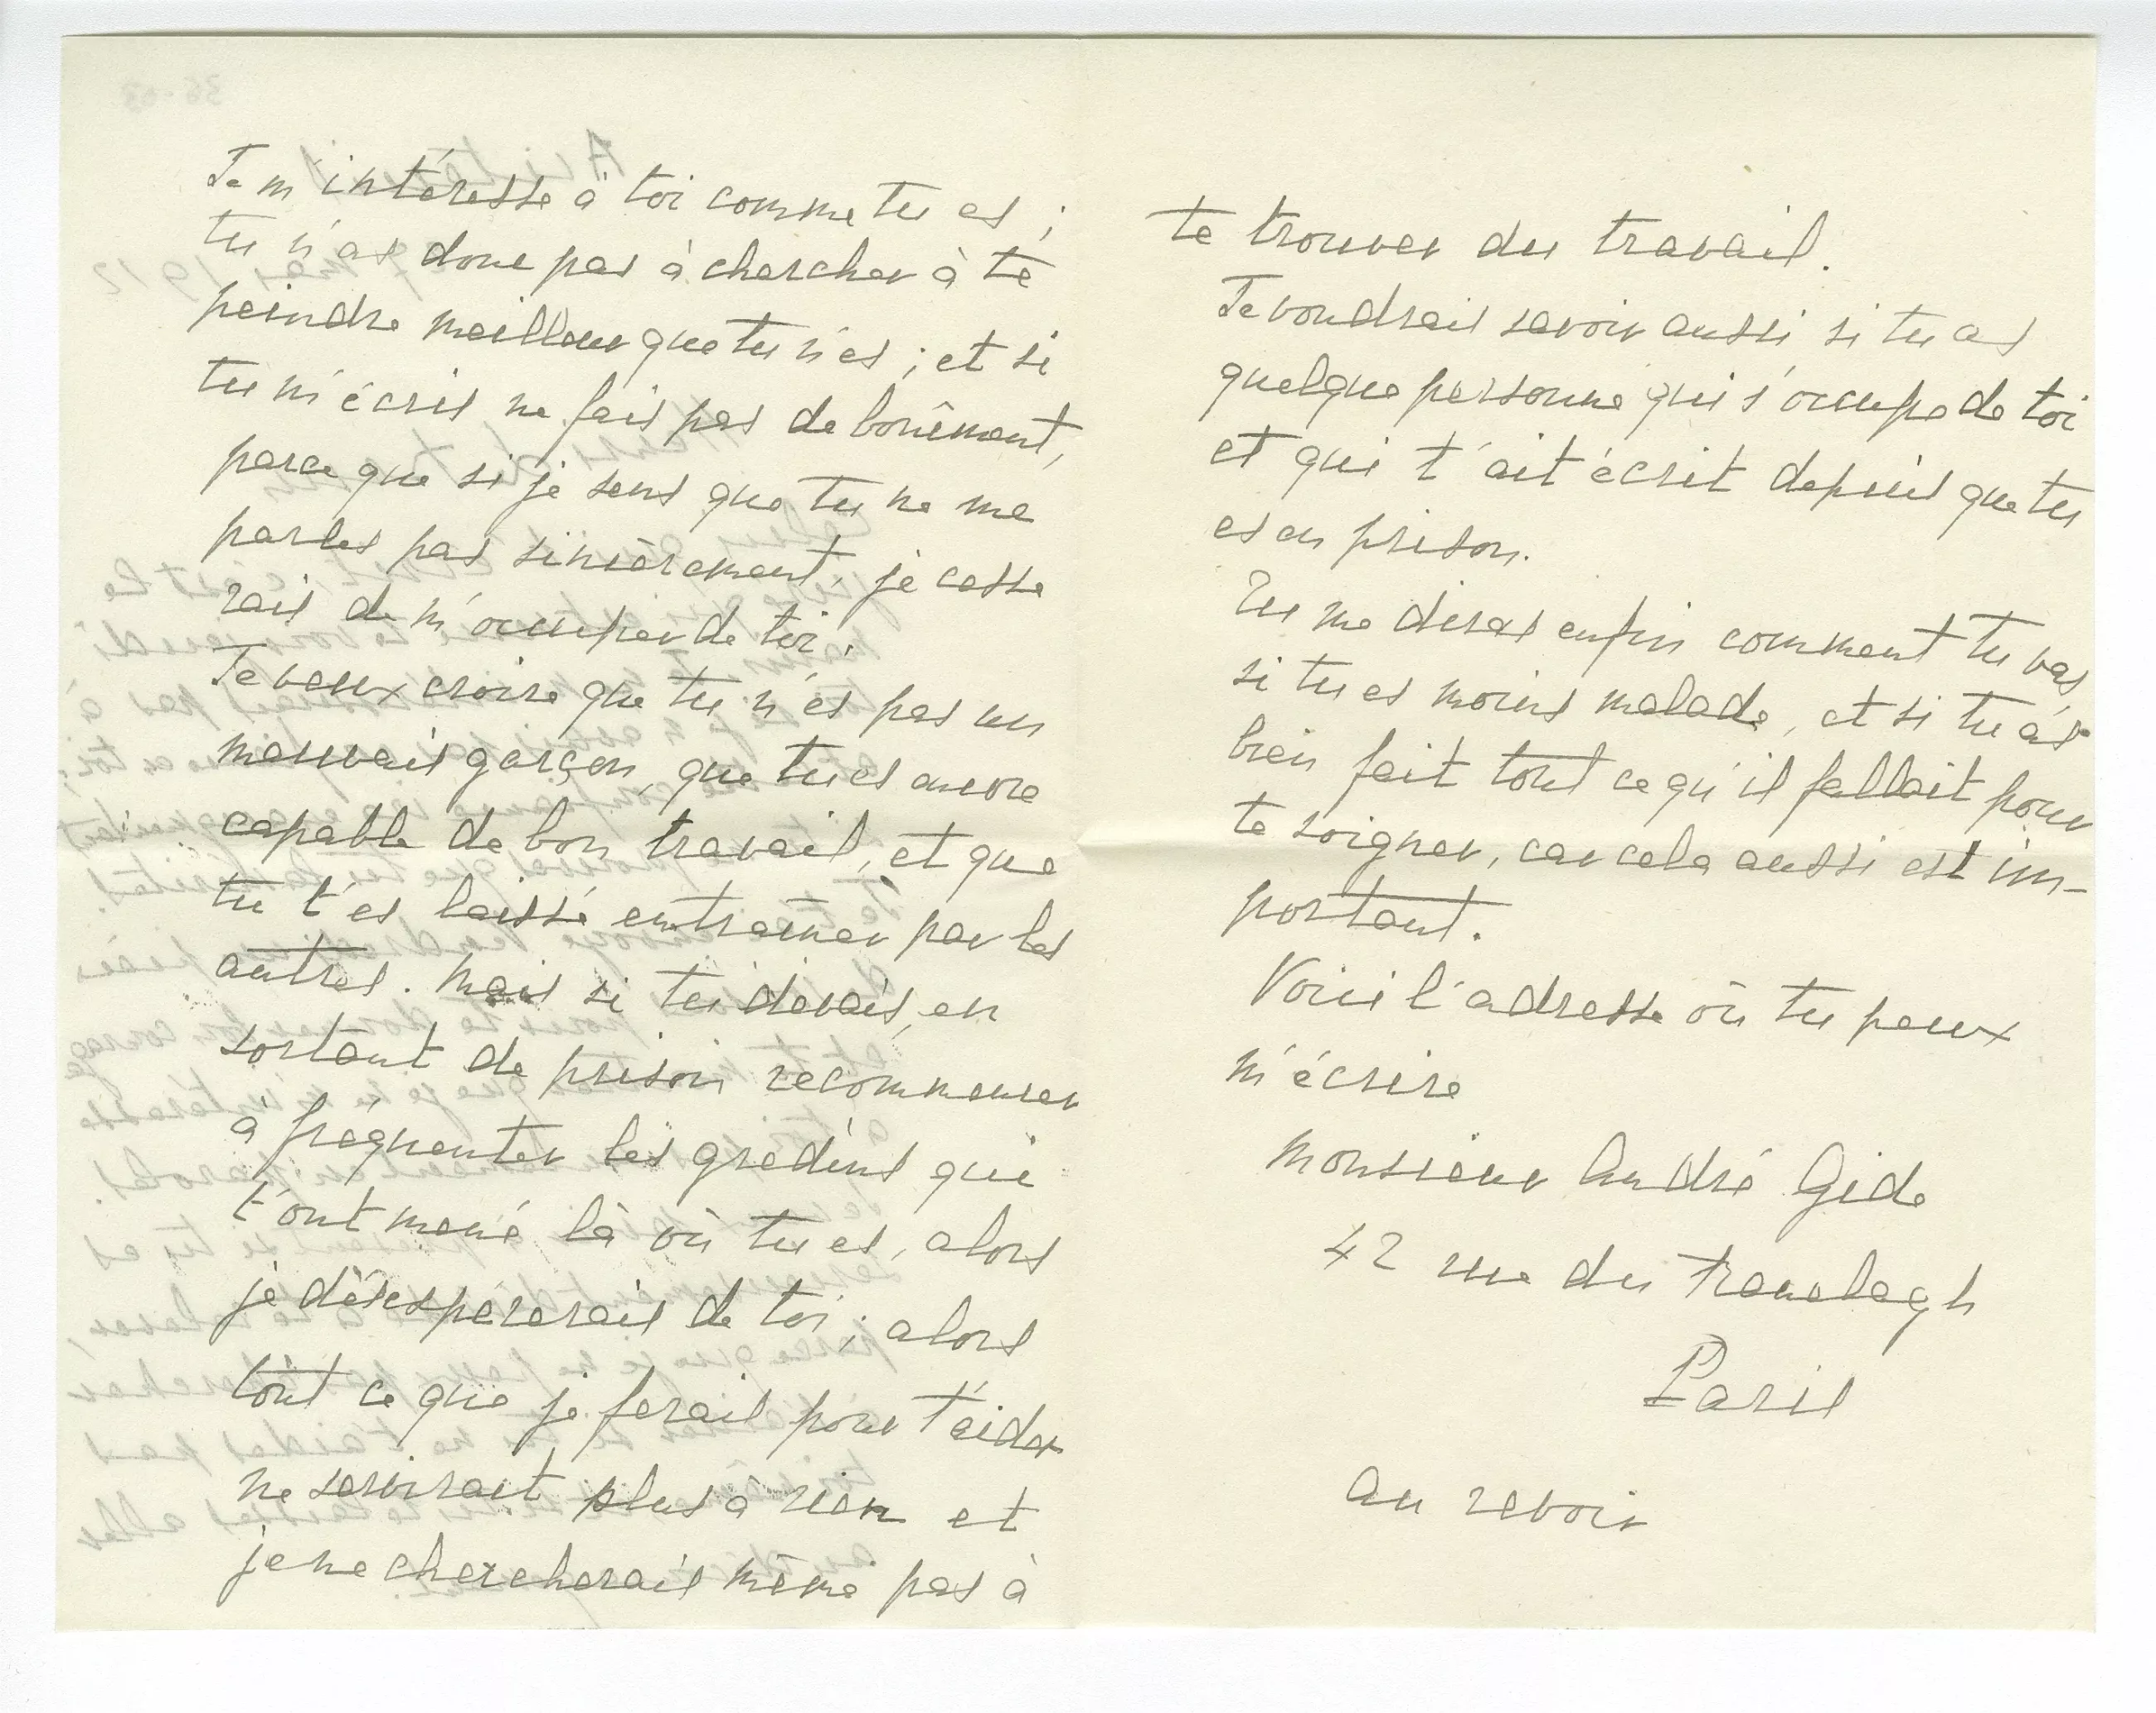 Je m'intéresse à toi comme tu es ;
tu n'as donc pas à chercher à te
peindre meilleur que tu n'es ; et si
tu m'écris ne fais pas de boniment,
parce que si je sens que tu ne me
parles pas sincèrement, je cesse
rais de m'occuper de toi.
Je veux croire que tu n'es pas un
mauvais garçon, que tu es encore
capable de bon travail, et que
tu t'es laissé entraîner par les
autres. Mais si tu devais, en
sortant de prison recommencer
à fréquenter les gredins qui
t'ont mené là où tu es, alors
je désespérerais de toi ; alors
tout ce que je ferais pour t'aider
ne servirait plus à rien et
je ne chercherais même pas à
te trouver du travail.
Je voudrais savoir aussi si tu as
quelque personne qui s'occupe de toi
et qui t'ait écrit depuis que tu
es en prison.
Tu me diras enfin comment tu vas,
si tu es moins malade, et si tu as
bien fait tout ce qu'il fallait pour
te soigner, car cela aussi est im-
portant.
Voici l'adresse où tu peux
m'écrire
Monsieur André Gide
42 rue du Ranelagh
Paris
au revoir